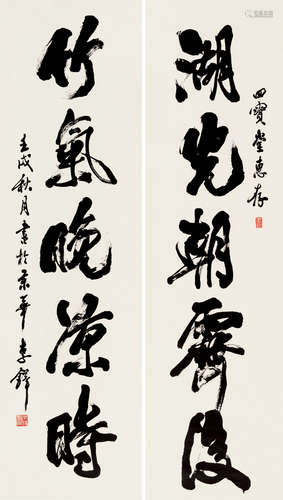 四寶堂惠存
湖光朝霽後
竹氣晚涼時
壬戌秋月書於京華李鐸